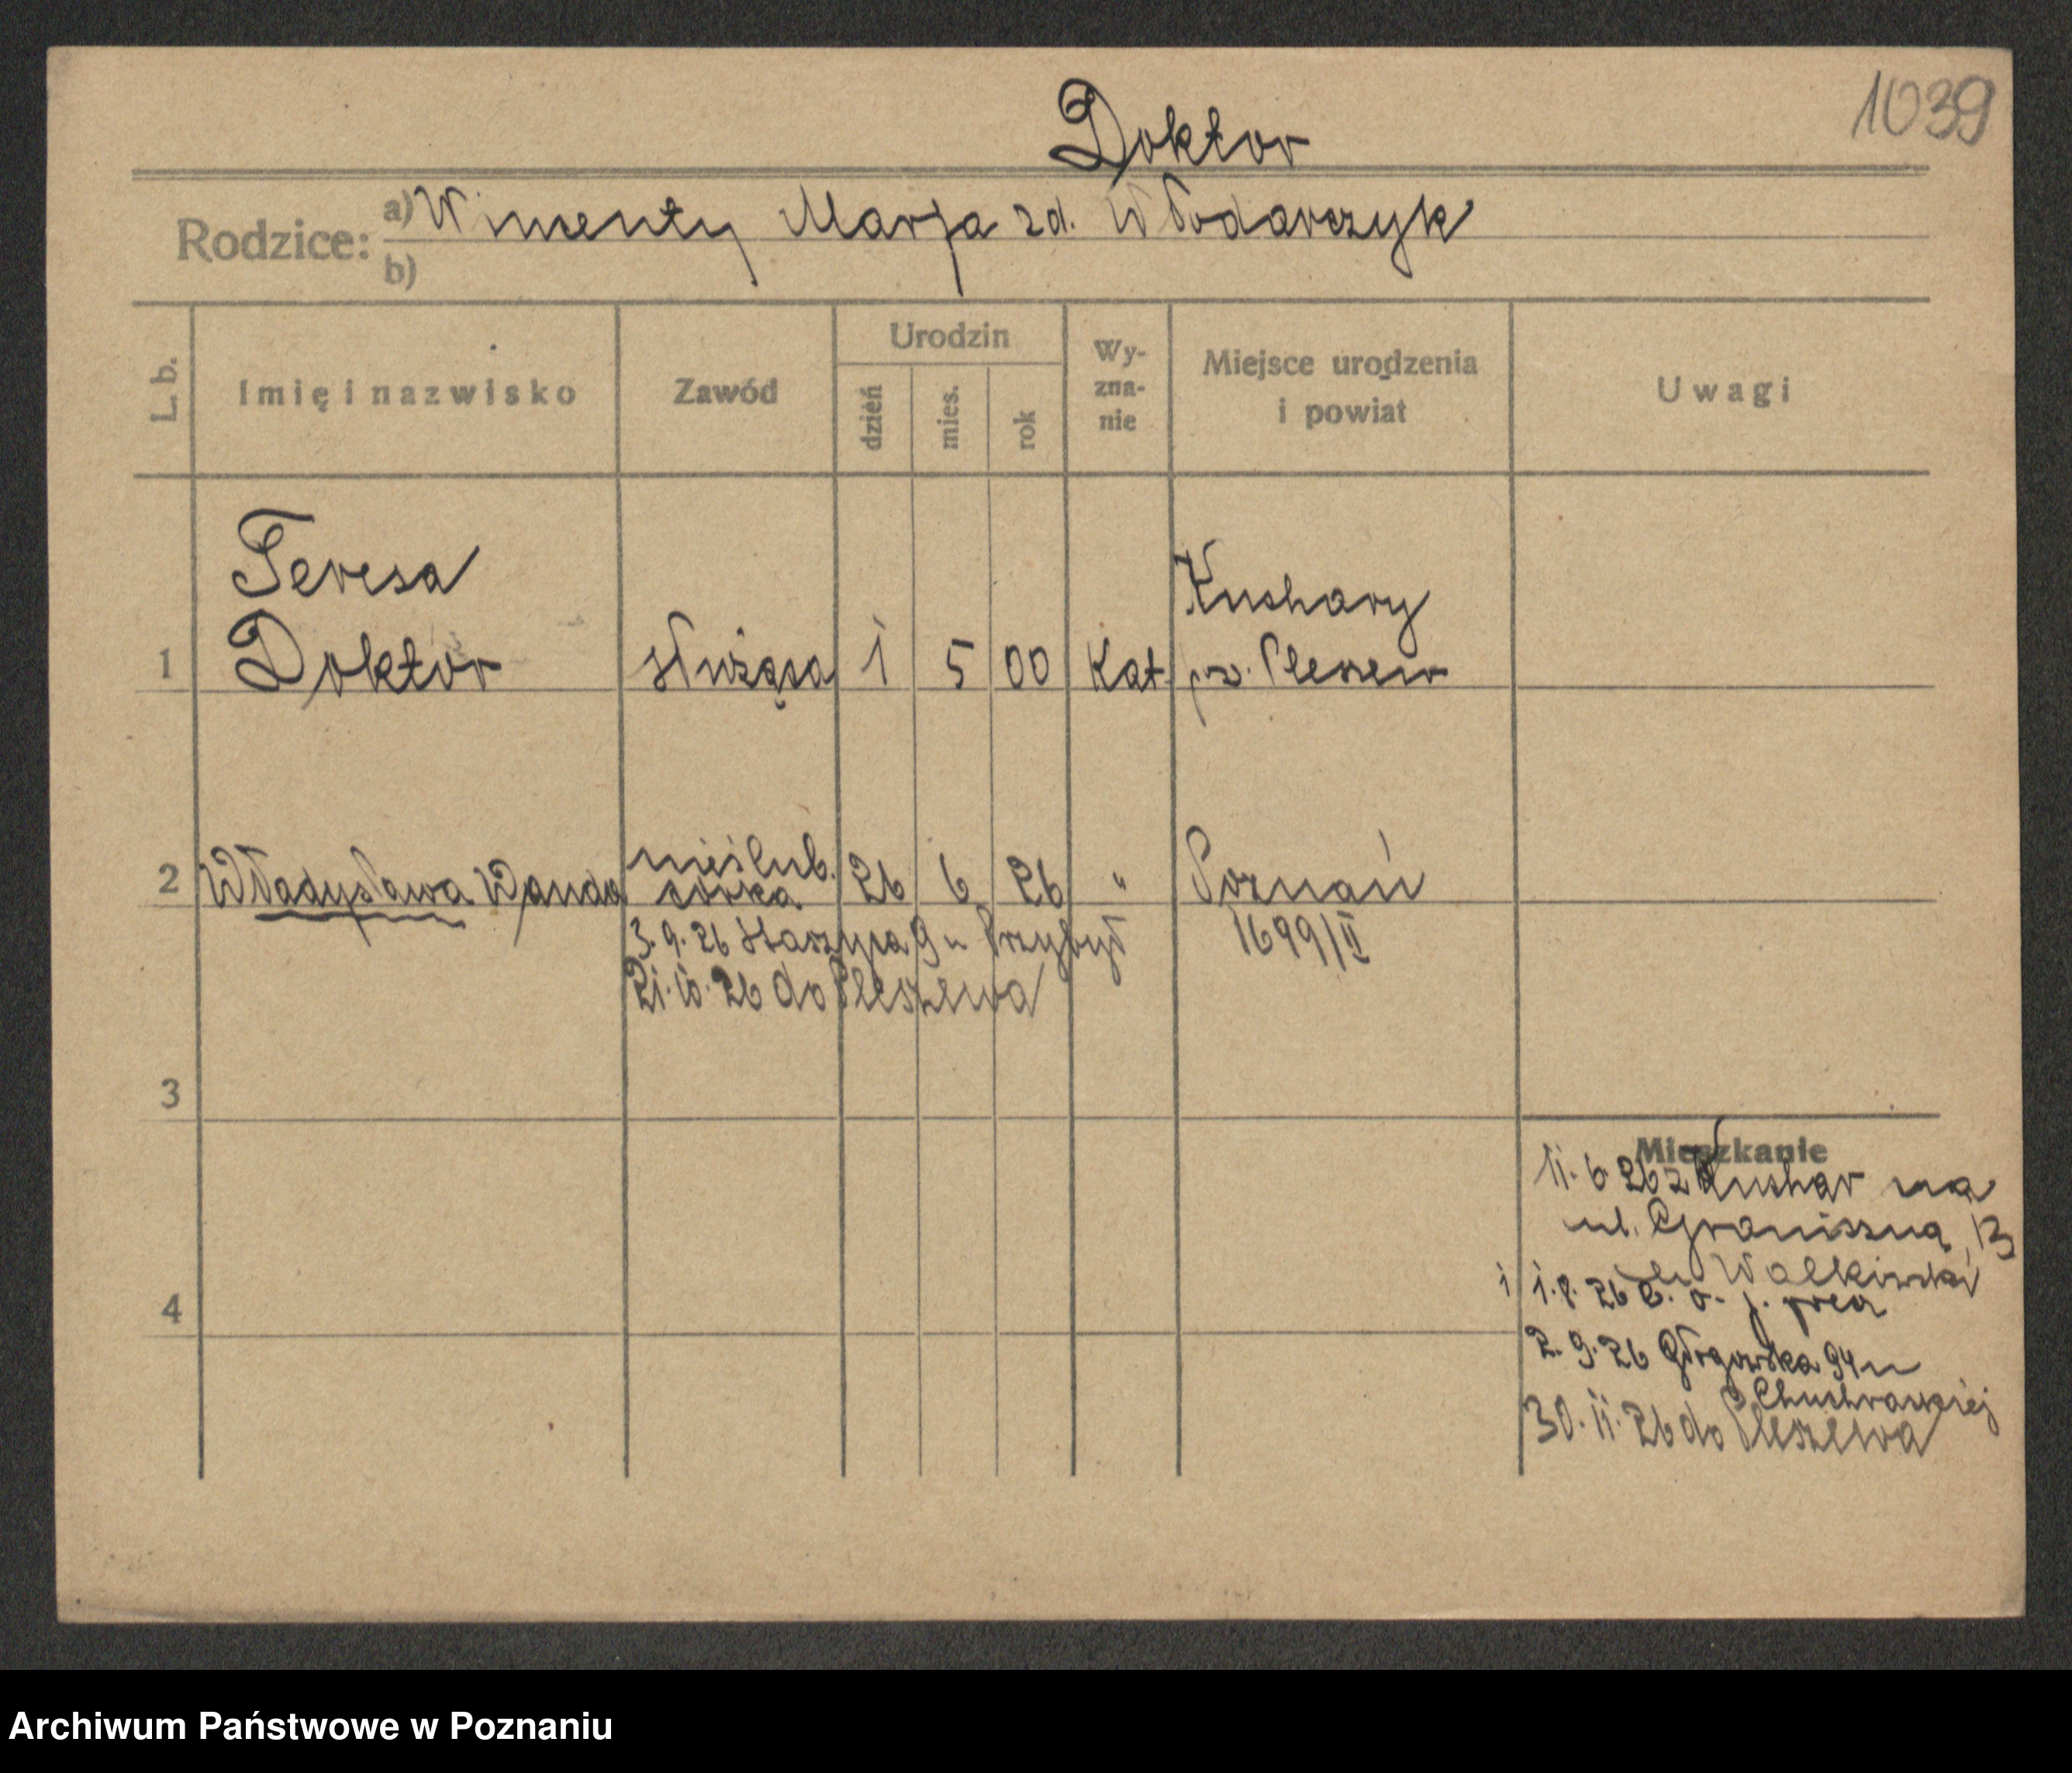 1039
Doktor
Rodzice: a) Wincenty Marja zd. Włodarczyk
b)
L. b. Imię i nazwisko Zawód Urodzin dzień mies. rok Wy-zna-nie Miejsce urodzenia i powiat Uwagi
Teresa Kuchary
1 Doktor służąca 1 5 00 Kat. pw. Pleszew
nieślub.
2 Władysława Wanda córka 26 6 26 " Poznań
3. 9. 26 Staszyca 9 u Przybył 1699/II
21. 10. 26 do Pleszewa
3
Mieszkanie
11. 6 26 z Kuchar na
ul. Graniczną 13
u
1. 8. 26
4
2. 9. 26 Głogowska 94 u
30. 11. 26 do Pleszewa
Archiwum Państwowe w Poznaniu